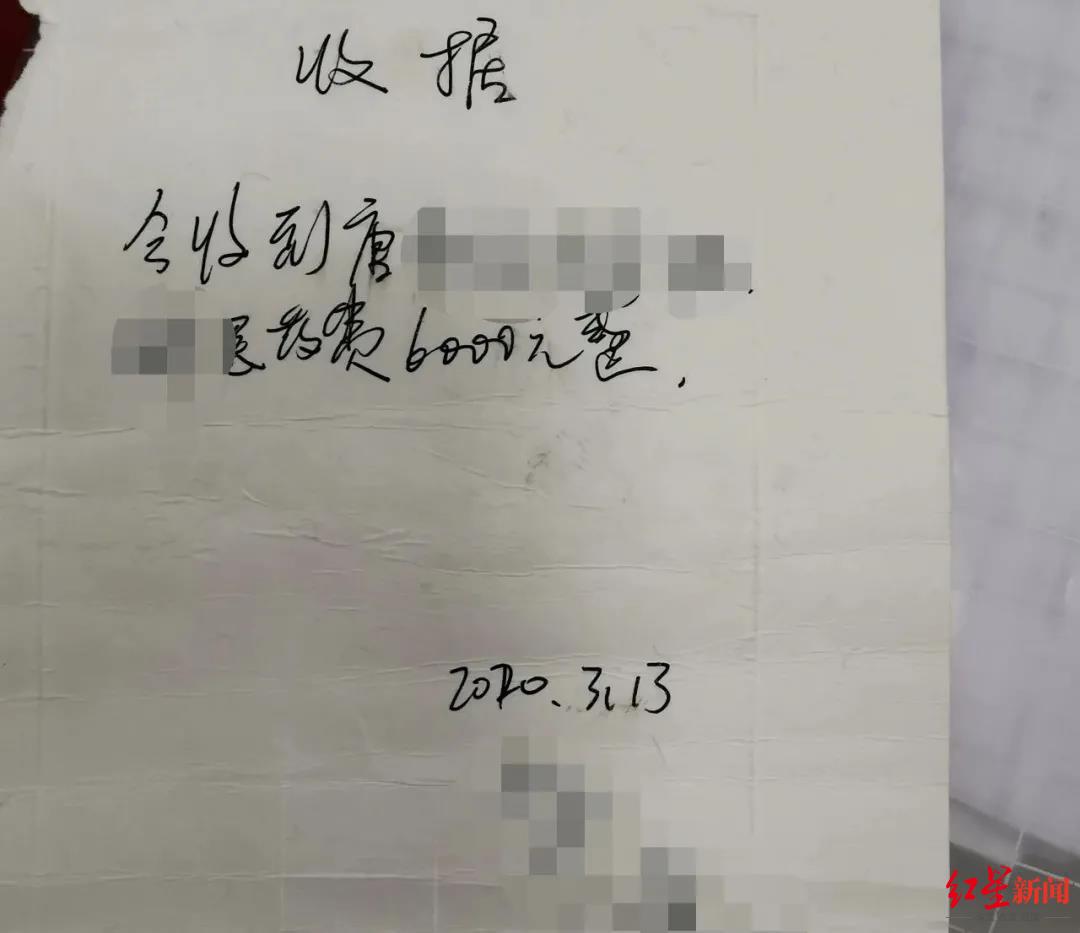 收据
今收到唐
费6000元整.
2020.3.13
红星新闻